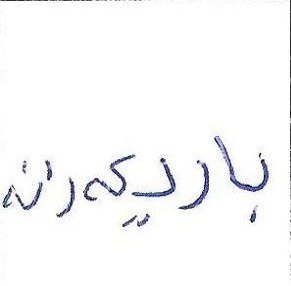 باردیکەرانە